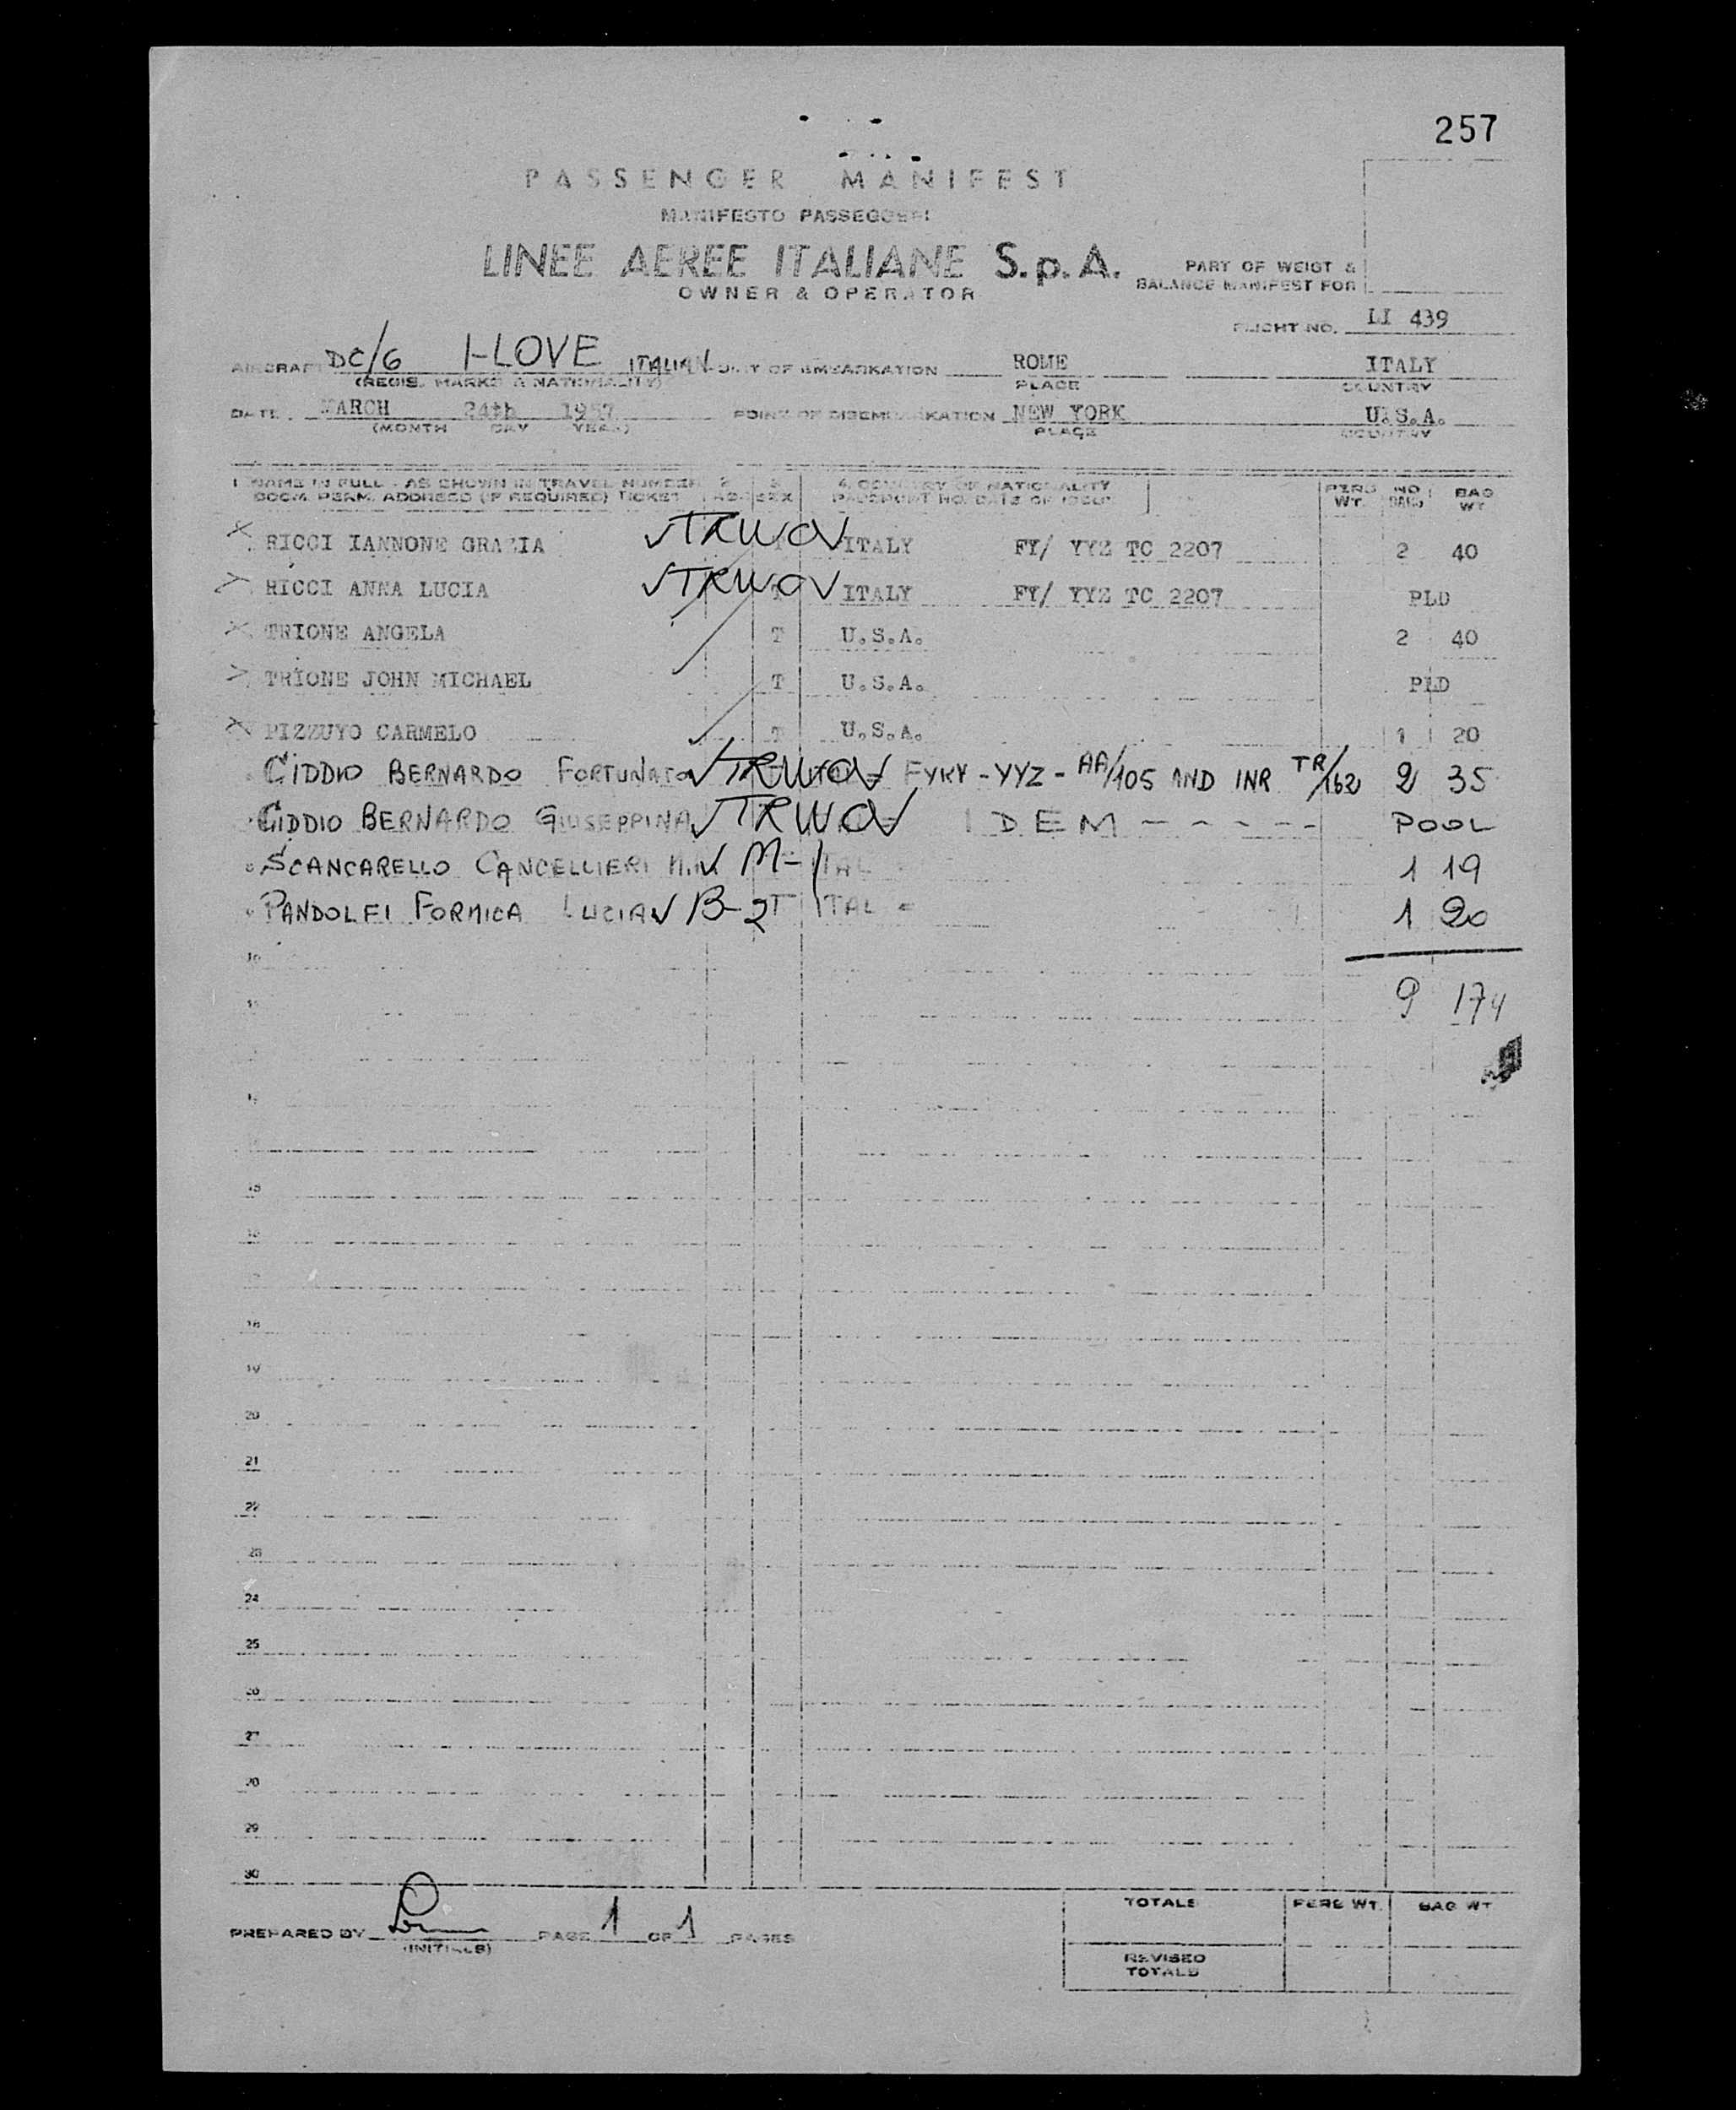 257
PASSENGER MANIFEST
MANIFESTO PASSEGGERI
LINEE AEREE ITALIANE S.p.A.
OWNER & OPERATOR
PART OF WEIGT &
BALANCE MANIFEST FOR
FLIGHT NO. LI 439
AIRCRAFT DC/6 I-LOVE ITALIAN POINT OF EMBARKATION ROME ITALY
(REGIS. MARKS & NATIONALITY) PLACE COUNTRY
DATE MARCH 24th 1957 POINT OF DISEMBARKATION NEW YORK U.S.A.
(MONTH DAY YEAR) PLACE COUNTRY
1 NAME IN FULL - AS SHOWN IN TRAVEL NUMBER 2 3 4. COUNTRY OF NATIONALITY PERS NO BAG
DOCM. PERM. ADDRESS (IF REQUIRED) TICKET SEX PASSPORT NO. DATE OF ISSUE WT. BAGS WT
RICCI IANNONE GRAZIA √TRWOV ITALY FY/ YYZ TC 2207 2 40
RICCI ANNA LUCIA √TRWOV T ITALY FY/ YYZ TC 2207 PLD
TRIONE ANGELA T U.S.A. 2 40
TRIONE JOHN MICHAEL T U.S.A. PLD
PIZZUYO CARMELO T U.S.A. 1 20
CIDDIO BERNARDO FORTUNATO √TRWOV = FYKY - YYZ - AA/105 AND INR TR/162 2 35
CIDDIO BERNARDO GIUSEPPINA √TRWOV IDEM - - - - - - POOL
SCANCARELLO CANCELLIERI √ M-1 ITAL 1 19
PANDOLFI FORMICA LUCIA √ B-2 T ITAL = 1 20
10
9 174
11
15
16
18
19
20
21
22
23
24
25
26
27
28
29
30
TOTALS PERS WT. BAG WT
PREPARED BY PAGE 1 OF 1 PAGES
(INITIALS)
REVISED
TOTALS